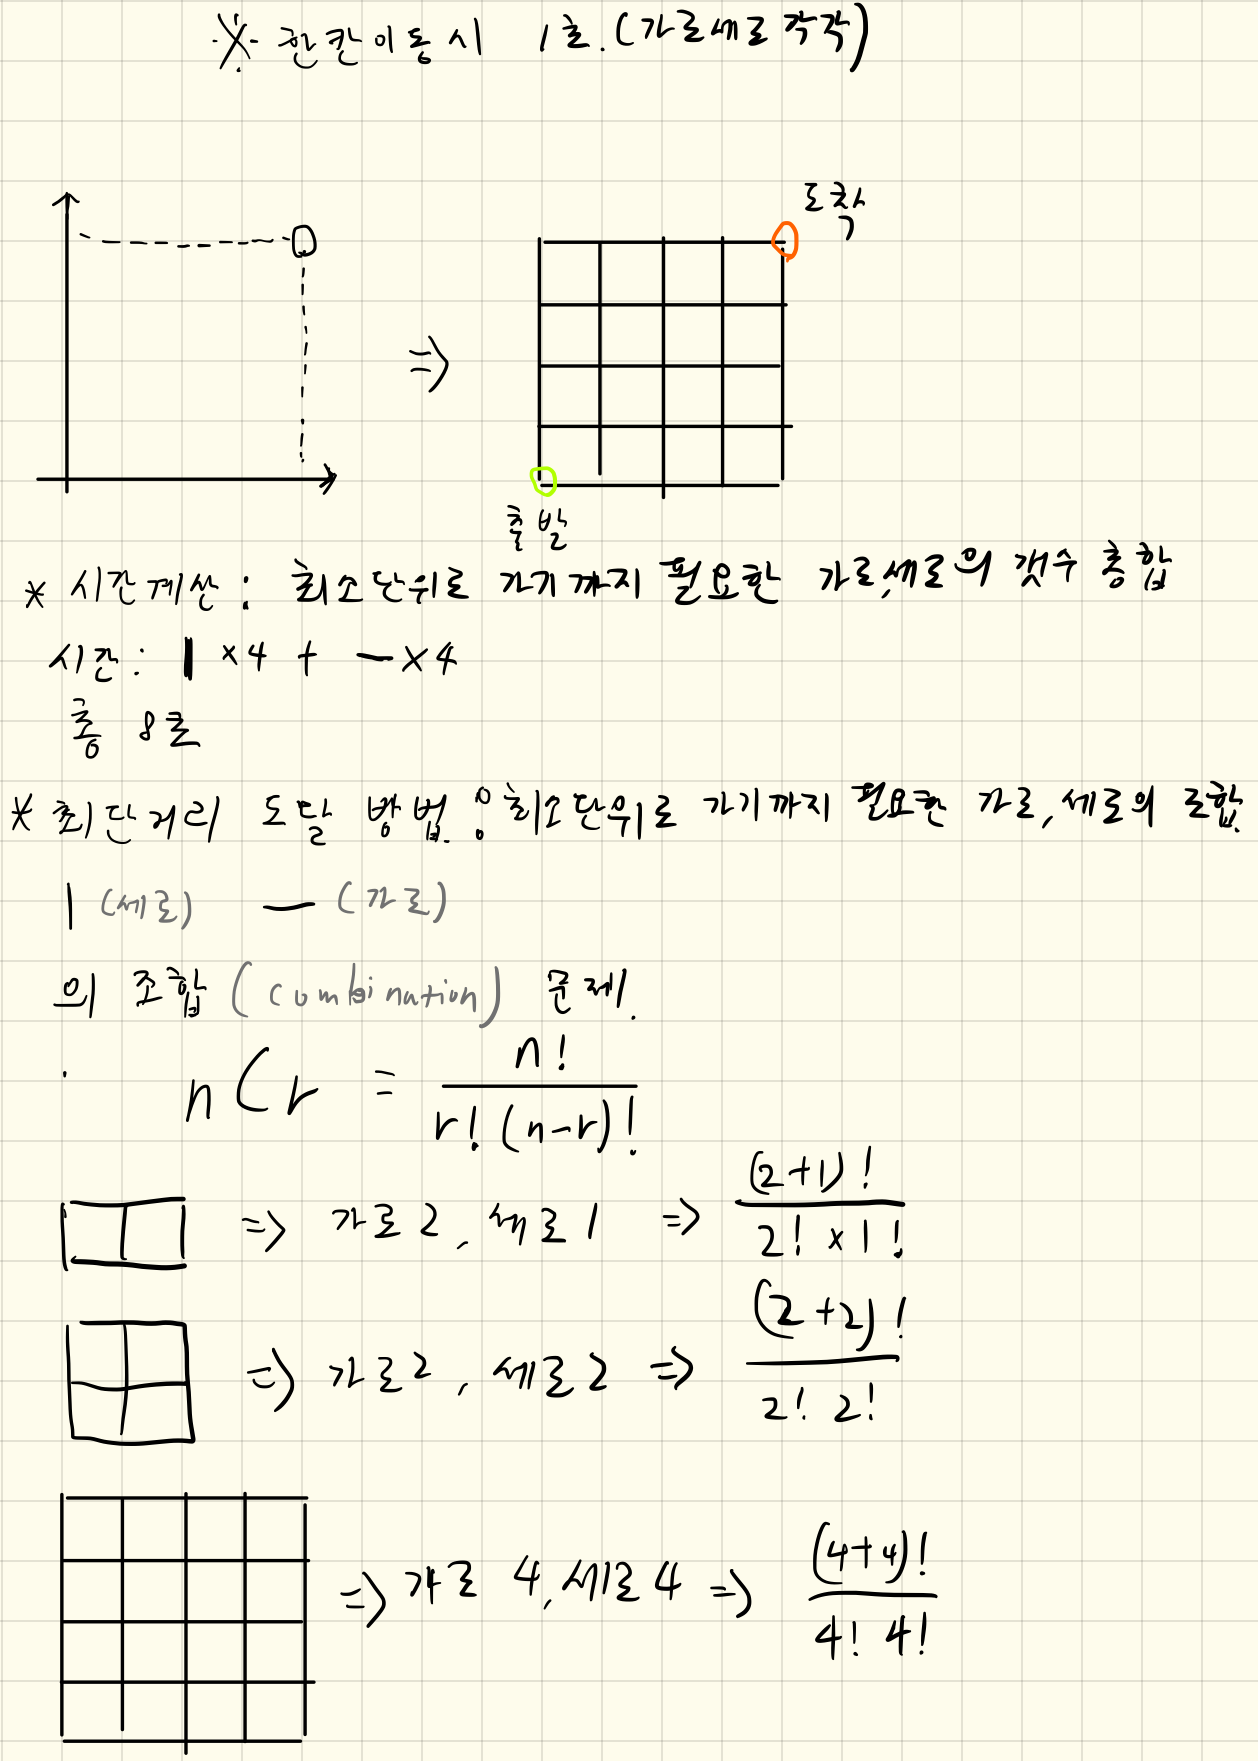 ※ 한칸이동시 1초.(가로세로 각각)
도착
⇒
출발
* 시간계산 : 최소단위로 가기까지 필요한 가로,세로의 갯수 총합
시간: | ×4 + — ×4
총 8초
* 최단거리 도달 방법 : 최소단위로 가기까지 필요한 가로,세로의 조합.
| (세로) — (가로)
의 조합 (combination) 문제.
nCr = n! / r!(n-r)!
⇒ 가로 2, 세로 1 ⇒ (2+1)! / 2! × 1!
⇒ 가로 2, 세로 2 ⇒ (2+2)! / 2! 2!
⇒ 가로 4, 세로 4 ⇒ (4+4)! / 4! 4!